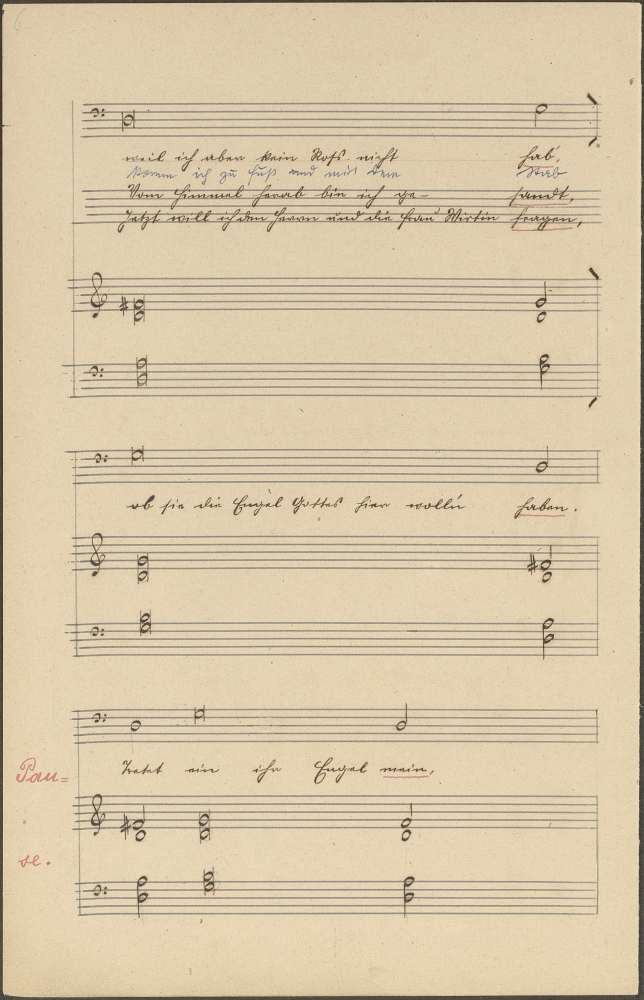 weil ich aber kein Rofs nicht hab,
komm ich zu Fuß und mit dem Stab
Vom Himmel herab bin ich ge- sandt,
Jetzt will ich den Herrn und die Frau Wirtin fragen,
ob sie die Engel Gottes hier wolln haben.
Tretet ein ihr Engel mein,
Pau=
se.